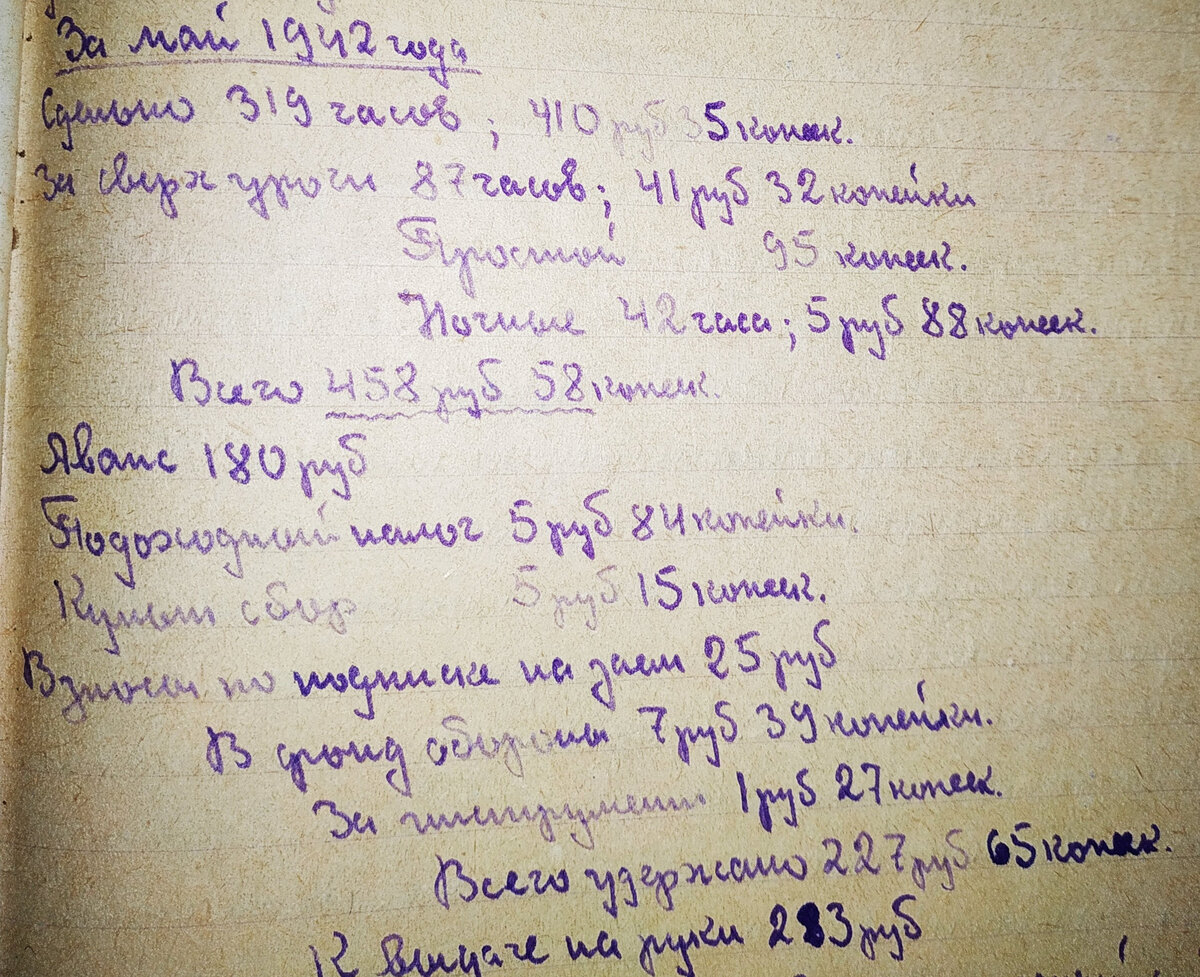 За май 1942 года
Сдельно 319 часов; 410 руб 35 копеек.
За сверх уроги 87 часов; 41 руб 32 копейки
Простой 95 копеек.
Ночные 42 часа; 5 руб 88 копеек.
Всего 458 руб 58 копеек.
Аванс 180 руб
Подоходный налог 5 руб 84 копейки.
Культ сбор 5 руб 15 копеек.
Взносы по подписке на заем 25 руб
В фонд обороны 7 руб 39 копейки.
За инструмент 1 руб 27 копеек.
Всего удержано 227 руб 65 копеек.
К выдаче на руки 283 руб